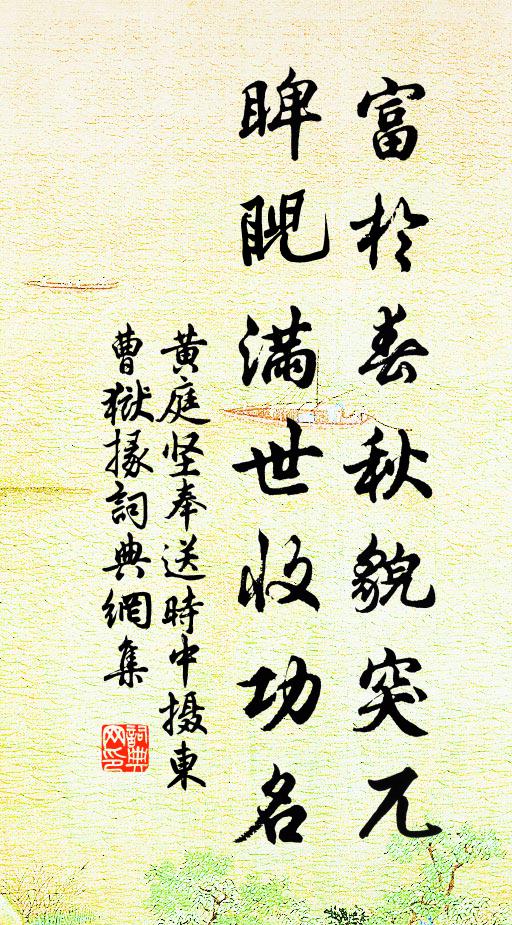 富於春秋貌突兀
睥睨滿世收功名
黄庭坚奉送時中摄東
曹獄掾詞典網集
詞典
网印